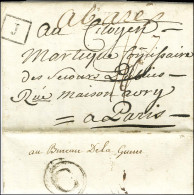 J
au Citoyen
Martique Commissaire
des Secours Publics
Rue Maison
= a Paris =
au Bureau De la Guerre